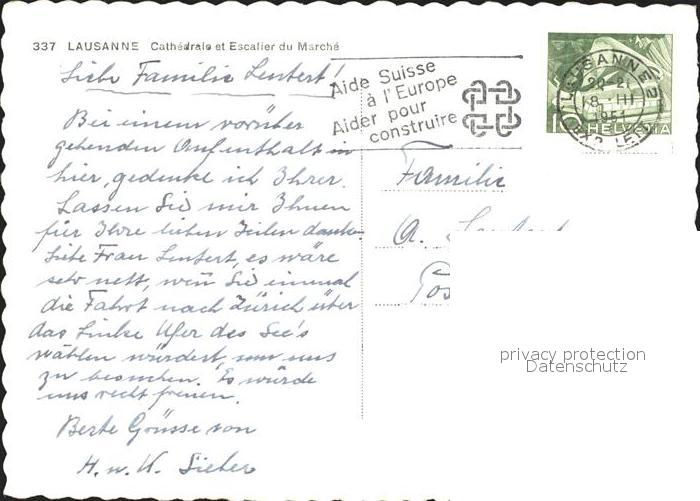 337 LAUSANNE Cathédrale et Escalier du Marché
Liebe Familie Lentert!
Aide Suisse
à l'Europe
Aider pour
construire
LAUSANNE 2
20-21
8 III
1951
EXP. LET
10 HELVETIA
Bei einem vorüber
gehenden Aufenthalt in
hier, gedenke ich Ihrer.
Lassen Sie mir Ihnen
für Ihre lieben Zeilen danke.
Liebe Frau Lentert, es wäre
sehr nett, wen̄ Sie einmal
die Fahrt nach Zürich über
das Linke Ufer des See's
wählen würdert, um uns
zu besuchen. Es würde
uns recht freuen.
Beste Grüsse von
H. u. K. Sieber
Familie
A.
Pos
privacy protection
Datenschutz